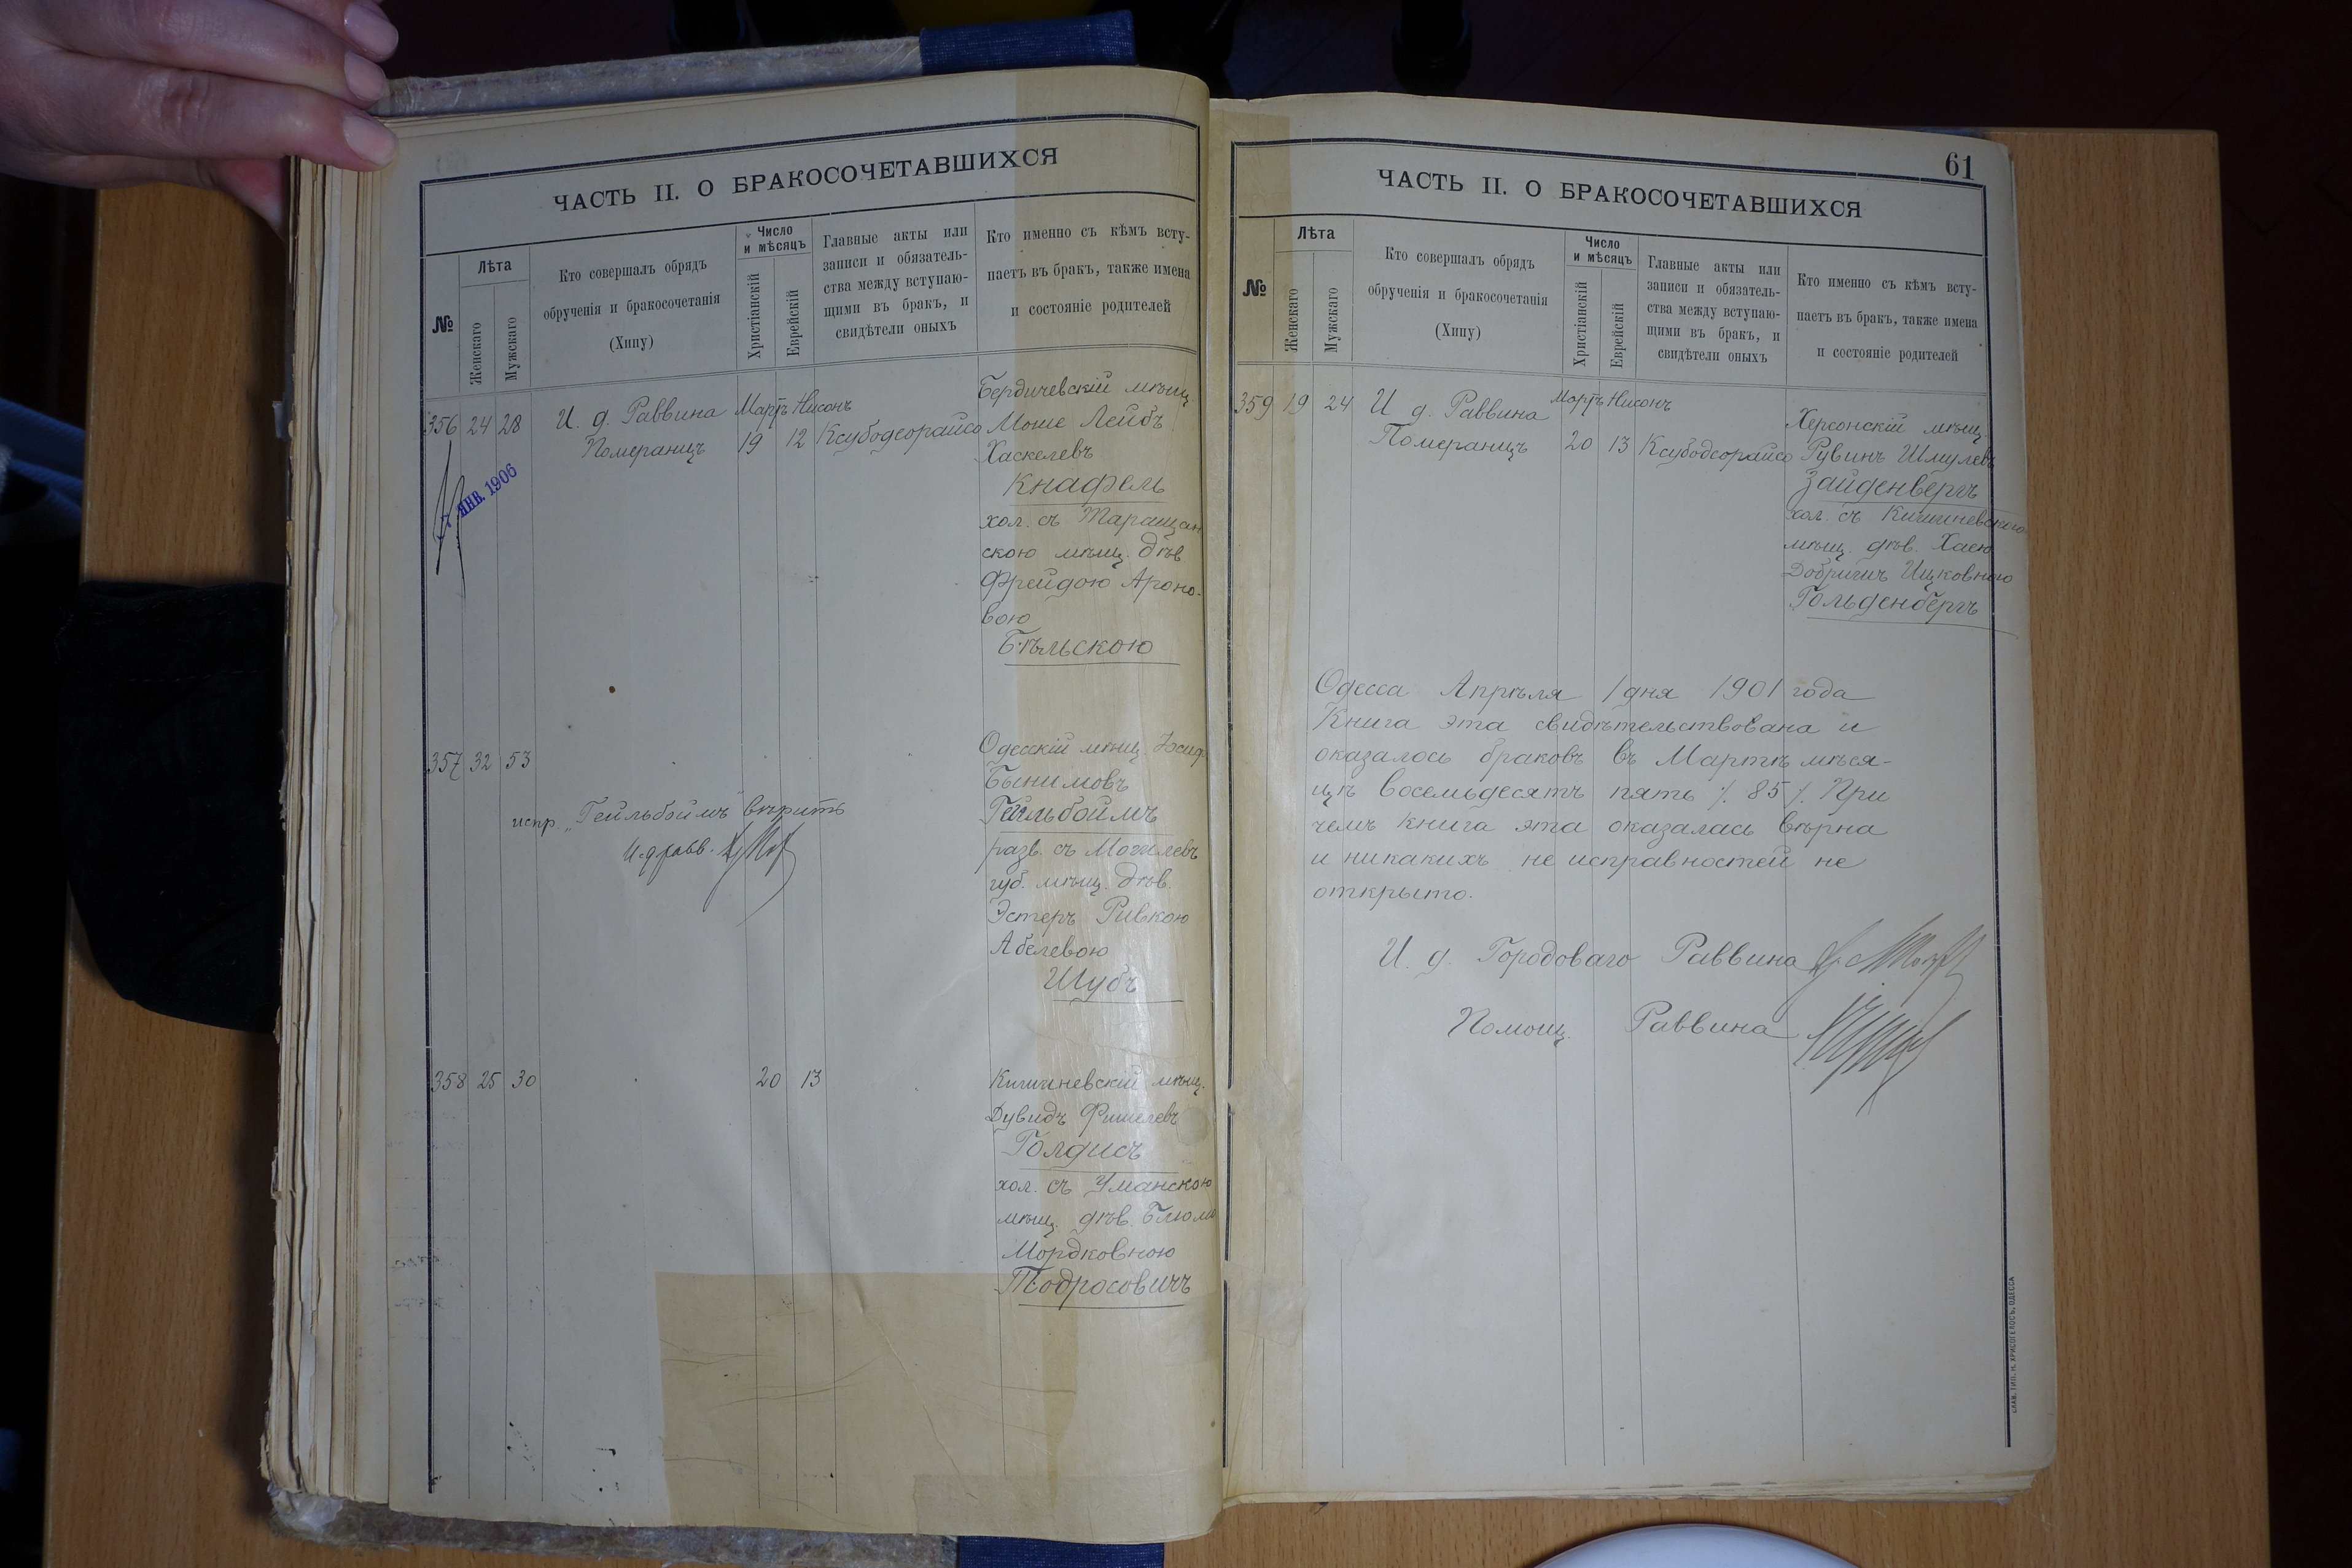 ЧАСТЬ II. О БРАКОСОЧЕТАВШИХСЯ
№
Лѣта
Женскаго
Мужскаго
Кто совершалъ обрядъ
обрученія и бракосочетанія
(Хипу)
Число
и мѣсяцъ
Христіанскій
Еврейскій
Главные акты или
записи и обязатель-
ства между вступаю-
щими въ бракъ, и
свидѣтели оныхъ
Кто именно съ кѣмъ всту-
паетъ въ бракъ, также имена
и состояніе родителей
356 24 28
И. д. Раввина
Померанцъ
Мартъ Нисонъ
19 12
Ксубодеорайсо
Бердичевскій мѣщ.
Моше Лейбъ
Хаскелевъ
Кнафель
хол. съ Таращан
скою мѣщ. дѣв
Фрейдою Ароно-
вою
Бѣльскою
ЯНВ. 1906
357 32 53
Одесскій мѣщ. Іосиф
Бынимовъ
Гейльбоймъ
разв. съ Могилевъ
губ. мѣщ. дѣв.
Эстеръ Ривкою
Абелевою
Шубъ
испр. „Гейльбоймъ" вѣрить
И.д. равв.
358 25 30
20 13
Кишиневскій мѣщ.
Дувидъ Фишелевъ
Голдисъ
хол. съ Уманскою
мѣщ. дѣв. Блюмо
Мордковною
Тодросовичъ
61
ЧАСТЬ II. О БРАКОСОЧЕТАВШИХСЯ
№
Лѣта
Женскаго
Мужскаго
Кто совершалъ обрядъ
обрученія и бракосочетанія
(Хипу)
Число
и мѣсяцъ
Христіанскій
Еврейскій
Главные акты или
записи и обязатель-
ства между вступаю-
щими въ бракъ, и
свидѣтели оныхъ
Кто именно съ кѣмъ всту-
паетъ въ бракъ, также имена
и состояніе родителей
359 19 24
И д. Раввина
Померанцъ
Мартъ Нисонъ
20 13
Ксубодеорайсо
Херсонскій мѣщ
Рувинъ Шмулевъ
Зайденвергъ
хол. съ Кишиневскою
мѣщ. дѣв. Хаею
Добришъ Ицковною
Гольденбергъ
Одесса Апрѣля 1 дня 1901 года
Книга эта свидѣтельствована и
оказалось браковъ въ Мартѣ мѣся-
цѣ восемьдесятъ пять /. 85 /. При
чемъ книга эта оказалась вѣрна
и никакихъ не исправностей не
открыто.
И. д. Городоваго Раввина
Помощ. Раввина
СЛАВ. ТИП. Н. ХРИСОГЕЛОСЪ, ОДЕССА